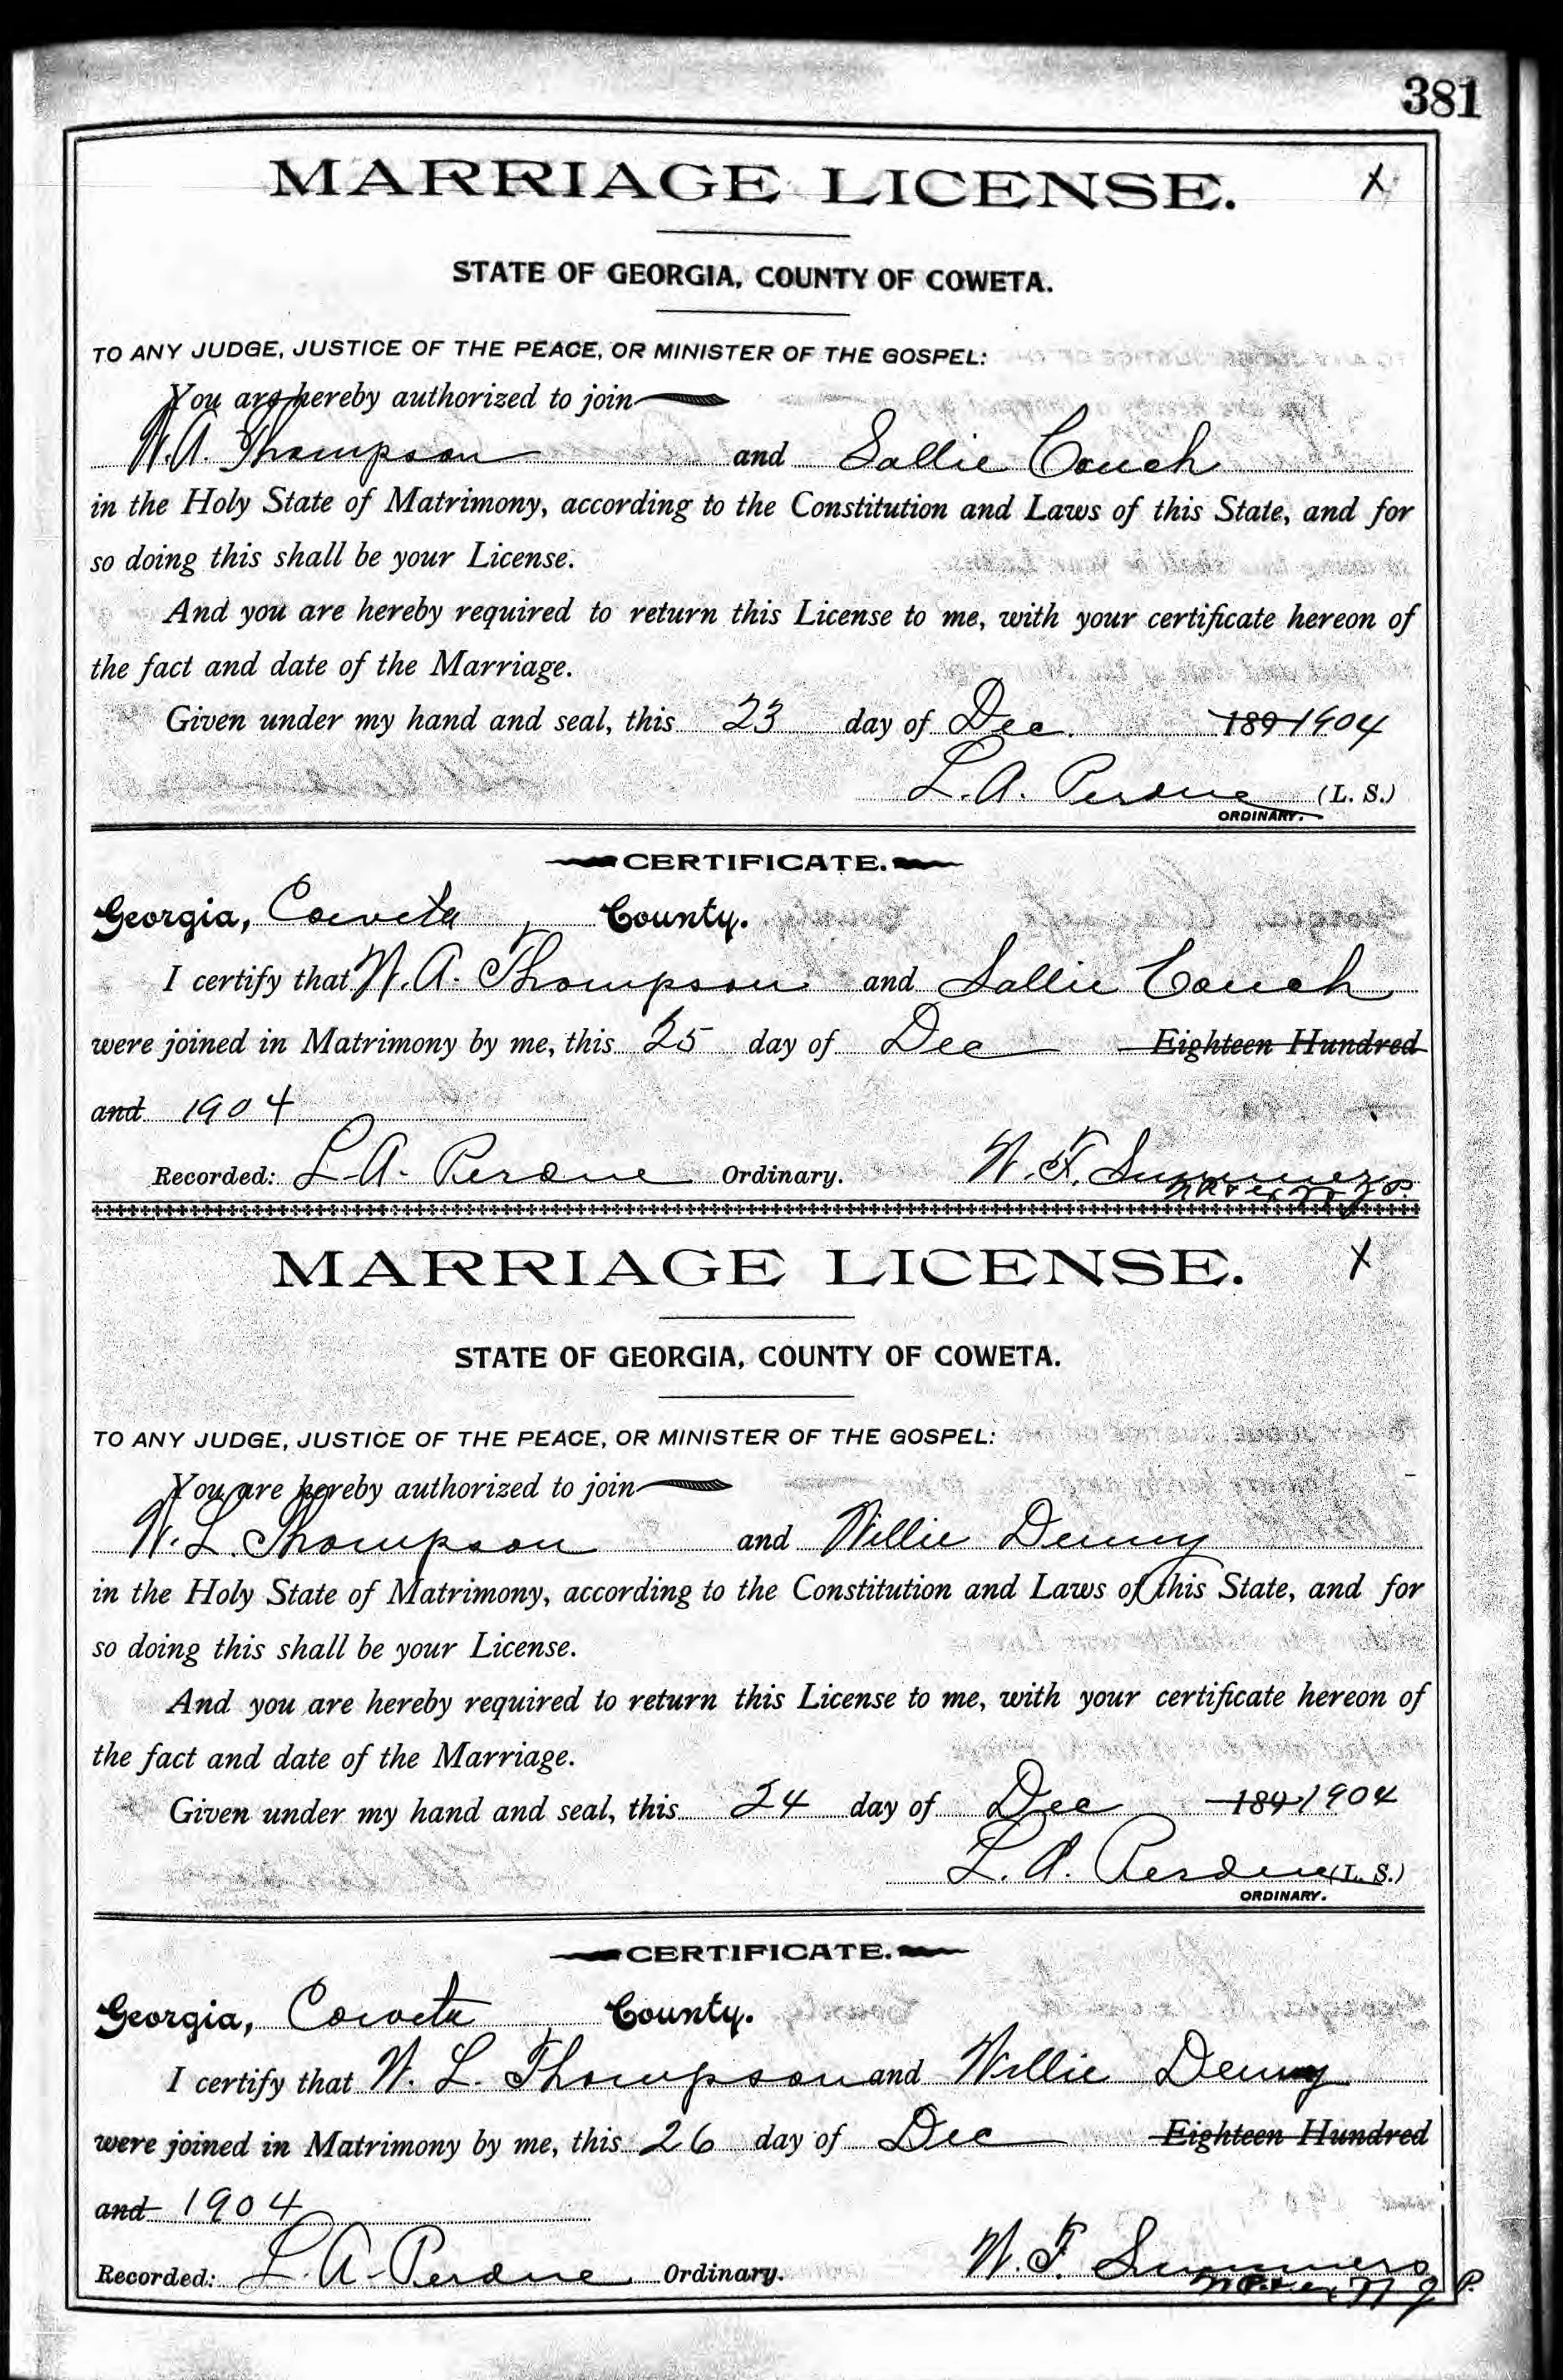 381
MARRIAGE LICENSE. X
STATE OF GEORGIA, COUNTY OF COWETA.
TO ANY JUDGE, JUSTICE OF THE PEACE, OR MINISTER OF THE GOSPEL:
You are hereby authorized to join
W. A. Thompson and Sallie Couch
in the Holy State of Matrimony, according to the Constitution and Laws of this State, and for
so doing this shall be your License.
And you are hereby required to return this License to me, with your certificate hereon of
the fact and date of the Marriage.
Given under my hand and seal, this 23 day of Dec. 189 1904
L. A. Perdue (L. S.)
ORDINARY.
CERTIFICATE.
Georgia, Coweta, County.
I certify that W. A. Thompson and Sallie Couch
were joined in Matrimony by me, this 25 day of Dec Eighteen Hundred
and 1904
Recorded: L. A. Perdue Ordinary. W. F. Summers
MARRIAGE LICENSE. X
STATE OF GEORGIA, COUNTY OF COWETA.
TO ANY JUDGE, JUSTICE OF THE PEACE, OR MINISTER OF THE GOSPEL:
You are hereby authorized to join
W. L. Thompson and Willie Denny
in the Holy State of Matrimony, according to the Constitution and Laws of this State, and for
so doing this shall be your License.
And you are hereby required to return this License to me, with your certificate hereon of
the fact and date of the Marriage.
Given under my hand and seal, this 24 day of Dec 189 1904
L. A. Perdue (L. S.)
ORDINARY.
CERTIFICATE.
Georgia, Coweta, County.
I certify that W. L. Thompson and Willie Denny
were joined in Matrimony by me, this 26 day of Dec Eighteen Hundred
and 1904
Recorded: L. A. Perdue Ordinary. W. F. Summers